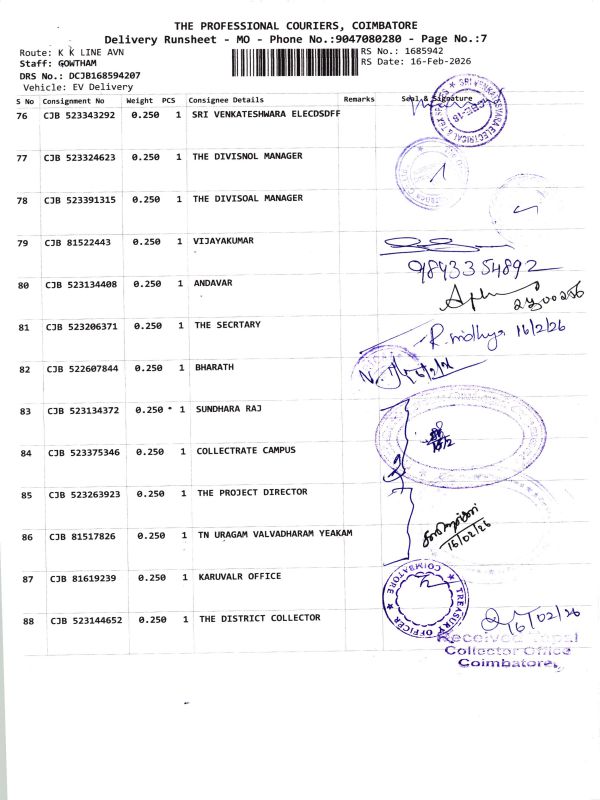 THE PROFESSIONAL COURIERS, COIMBATORE
Delivery Runsheet - MO - Phone No.:9047080280 - Page No.:7
Route: K K LINE AVN
RS No.: 1685942
Staff: GOWTHAM
RS Date: 16-Feb-2026
DRS No.: DCJB168594207
Vehicle: EV Delivery
S No Consignment No Weight PCS Consignee Details Remarks Seal & Signature
76 CJB 523343292 0.250 1 SRI VENKATESHWARA ELECDSDFF
77 CJB 523324623 0.250 1 THE DIVISNOL MANAGER
78 CJB 523391315 0.250 1 THE DIVISOAL MANAGER
79 CJB 81522443 0.250 1 VIJAYAKUMAR
9893354892
80 CJB 523134408 0.250 1 ANDAVAR
81 CJB 523206371 0.250 1 THE SECRTARY
16/2/26
82 CJB 522607844 0.250 1 BHARATH
83 CJB 523134372 0.250 1 SUNDHARA RAJ
84 CJB 523375346 0.250 1 COLLECTRATE CAMPUS
85 CJB 523263923 0.250 1 THE PROJECT DIRECTOR
86 CJB 81517826 0.250 1 TN URAGAM VALVADHARAM YEAKAM
16/02/26
87 CJB 81619239 0.250 1 KARUVALR OFFICE
TREASURY OFFICER COIMBATORE
88 CJB 523144652 0.250 1 THE DISTRICT COLLECTOR
16/02/26
Received Tapal
Collector Office
Coimbatore